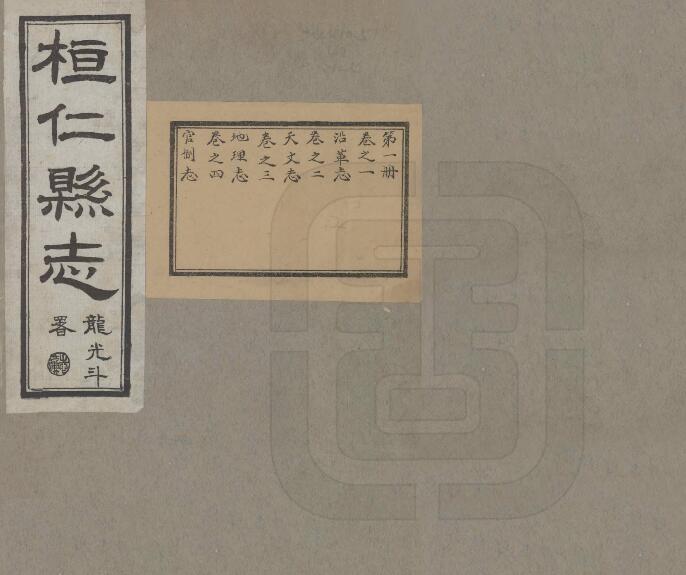 第一册
卷之一
沿革志
卷之二
天文志
卷之三
地理志
卷之四
官制志
桓仁縣志
龍光斗
署